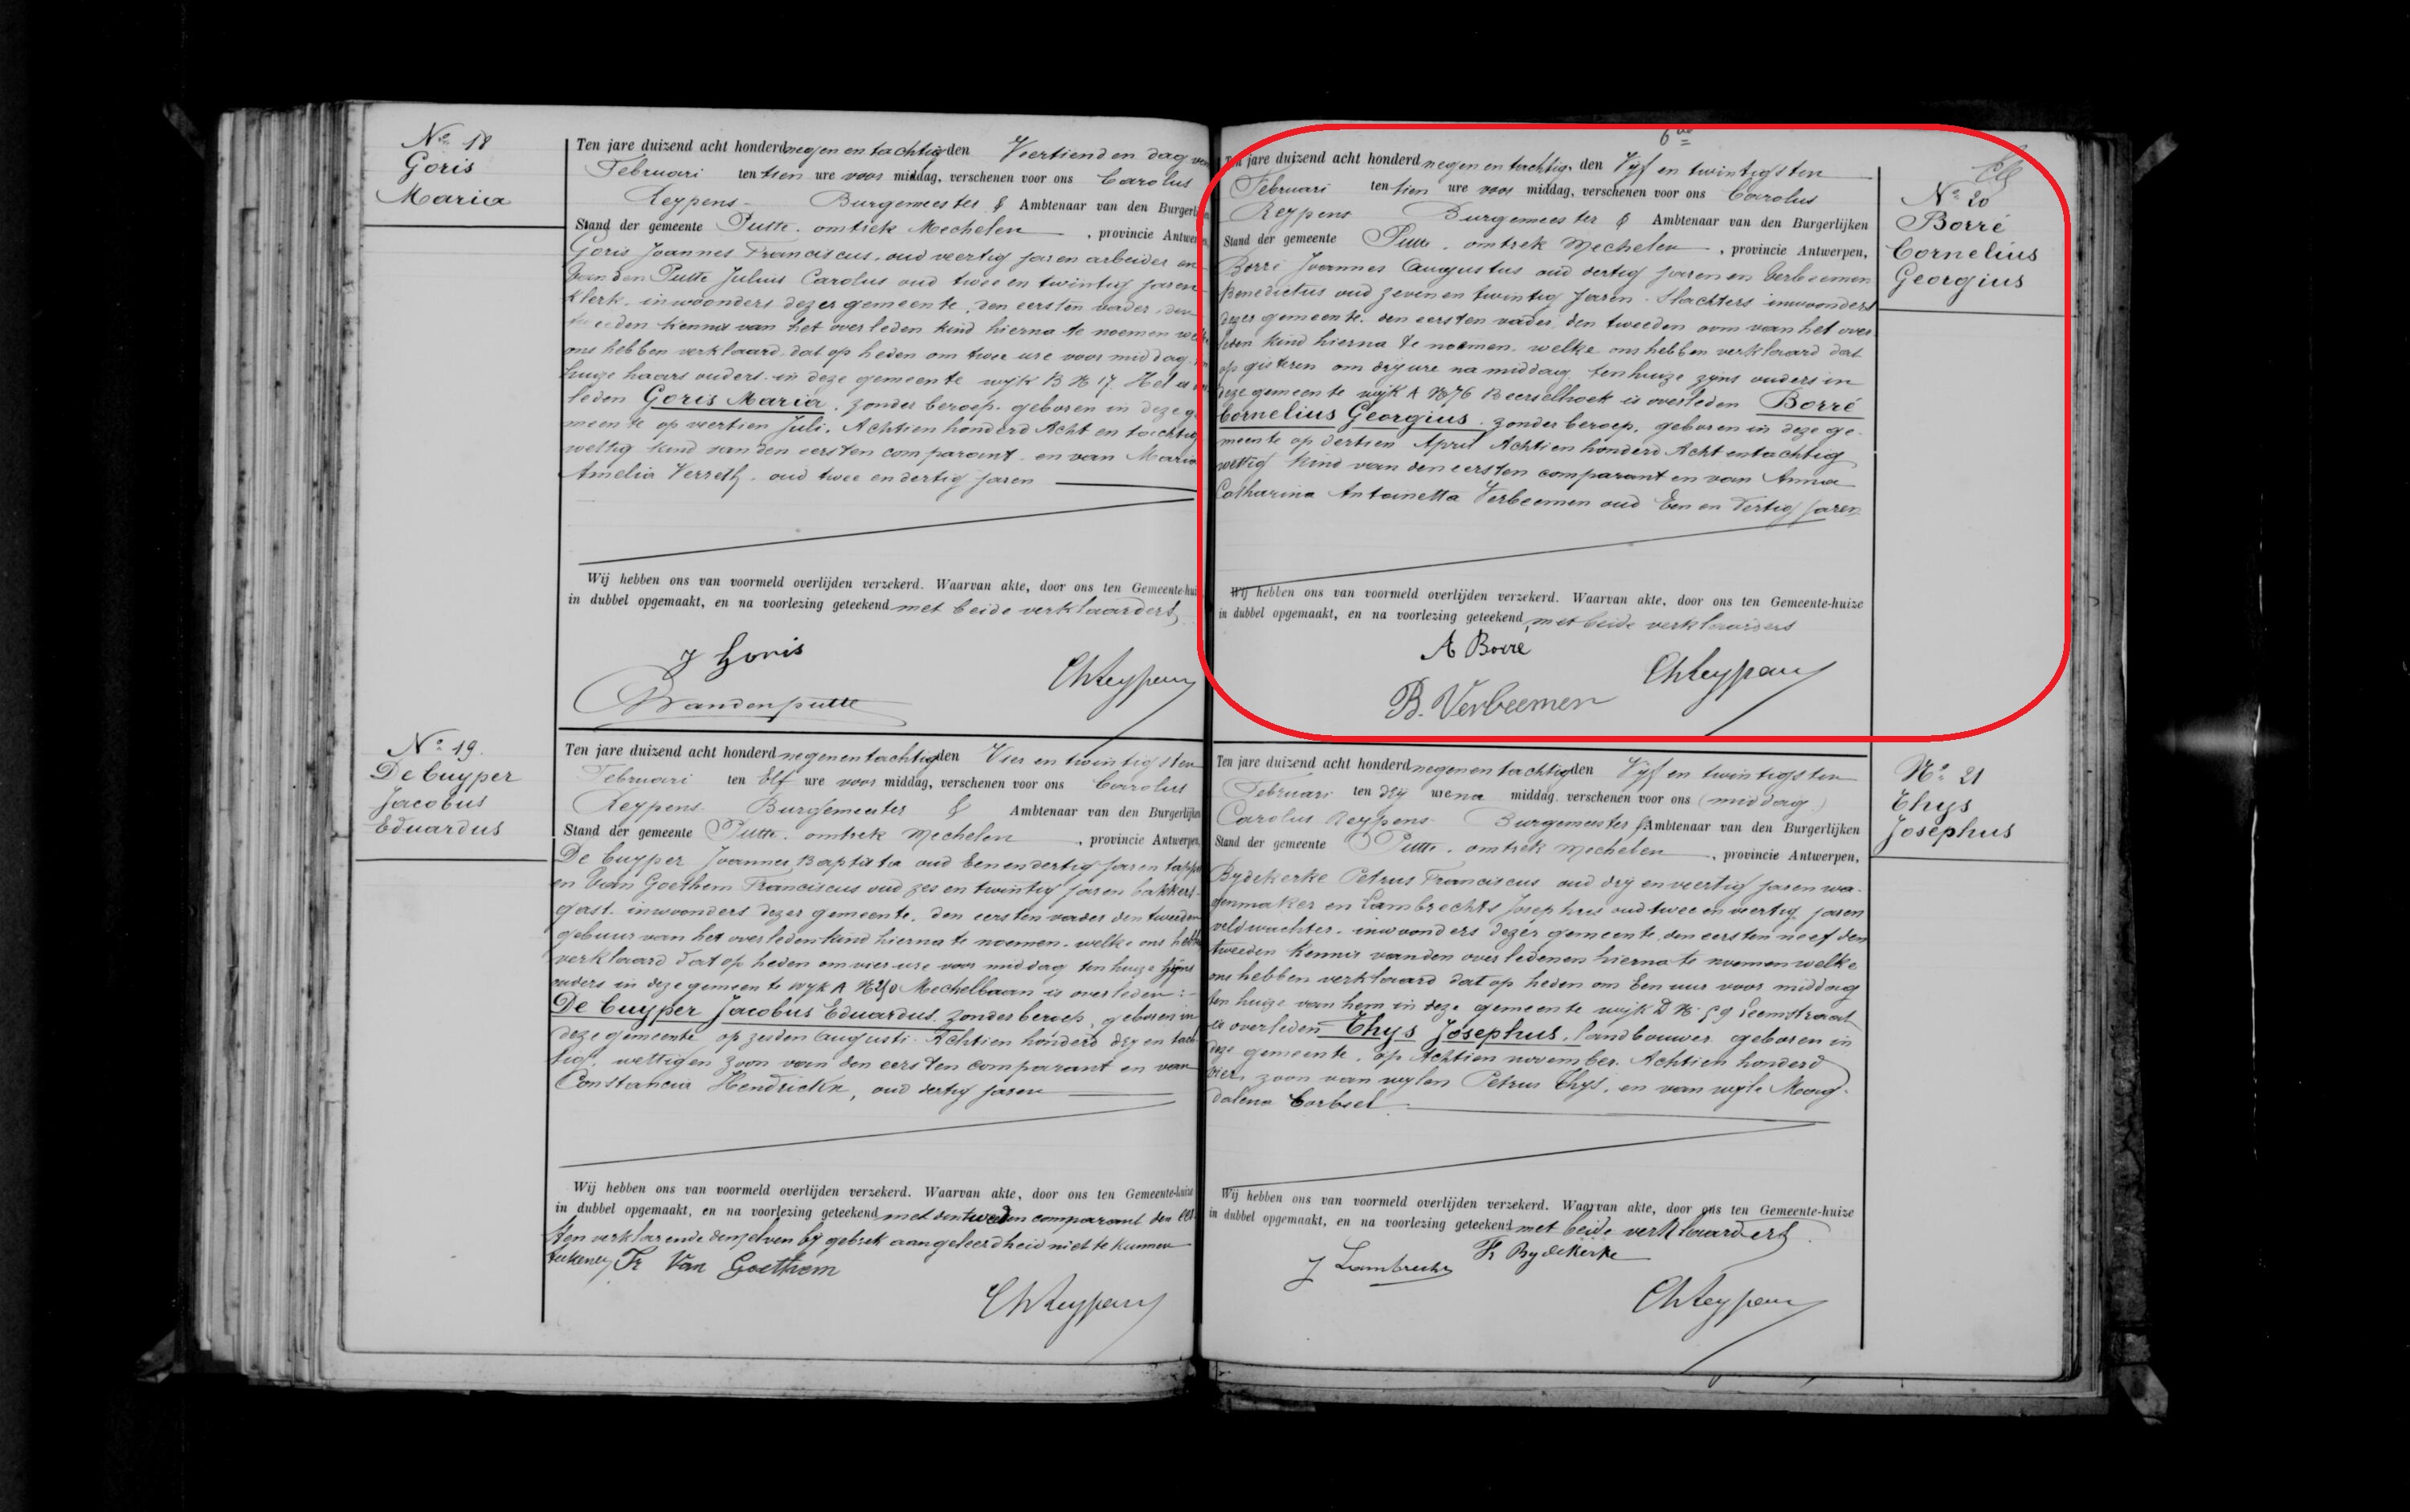 No 18
Goris
Maria
Ten jare duizend acht honderd negen en tachtig den Veertienden dag van
Februari ten tien ure voor middag, verschenen voor ons Carolus
Reypens Burgemeester & Ambtenaar van den Burgerlijken
Stand der gemeente Putte omtrek Mechelen, provincie Antwerpen,
Goris Joannes Franciscus, oud veertig jaren arbeider en
Van den Putte Julius Carolus oud twee en twintig jaren
klerk, inwoonders dezer gemeente, den eersten vader, den
tweeden kennis van het overleden kind hierna te noemen welke
ons hebben verklaard dat op heden om twee ure voor middag, ten
huize haars ouders in deze gemeente wijk B No 17, Hel is over
leden Goris Maria, zonder beroep, geboren in deze ge
meente op veertien Juli, Achtien honderd Acht en tachtig
wettig kind van den eersten comparant en van Maria
Amelia Verreth, oud twee en dertig jaren
Wij hebben ons van voormeld overlijden verzekerd. Waarvan akte, door ons ten Gemeente-huize
in dubbel opgemaakt, en na voorlezing geteekend met beide verklaarders,
J Goris
Vandenputte
ChReypens
No 19.
De Cuyper
Jacobus
Eduardus
Ten jare duizend acht honderd negen en tachtig den Vier en twintigsten
Februari ten Elf ure voor middag, verschenen voor ons Carolus
Reypens Burgemeester & Ambtenaar van den Burgerlijken
Stand der gemeente Putte omtrek Mechelen, provincie Antwerpen,
De Cuyper Joannes Baptista oud Een en dertig jaren
en Van Goethem Franciscus oud zes en twintig jaren bakkers-
gast, inwoonders dezer gemeente, den eersten vader den tweeden
gebuur van het overleden kind hierna te noemen, welke ons hebben
verklaard dat op heden om vier ure voor middag ten huize zijns
ouders in deze gemeente wijk A No Mechelbaan is overleden :-
De Cuyper Jacobus Eduardus, zonder beroep, geboren in
deze gemeente op zesden Augusti Achtien honderd dry en tach-
tig, wettigen zoon van den eersten comparant en van
Constancia Hendrickx, oud dertig jaren
Wij hebben ons van voormeld overlijden verzekerd. Waarvan akte, door ons ten Gemeente-huize
in dubbel opgemaakt, en na voorlezing geteekend met den tweeden comparant den eer
sten verklarende denzelven bij gebrek aan geleerdheid niet te kunnen
teekenen Fr Van Goethem
ChReypens
6de
No 20
Borré
Cornelius
Georgius
Ten jare duizend acht honderd negen en tachtig, den Vyf en twintigsten
Februari ten tien ure voor middag, verschenen voor ons Carolus
Reypens Burgemeester & Ambtenaar van den Burgerlijken
Stand der gemeente Putte, omtrek Mechelen, provincie Antwerpen,
Borré Joannes Augustus oud dertig jaren en Verbeemen
Benedictus oud zeven en twintig jaren, Slachters inwoonders
dezer gemeente, den eersten vader, den tweeden oom van het over
leden kind hierna te noemen, welke ons hebben verklaard dat
op gisteren om dry ure na middag ten huize zyns ouders in
deze gemeente wyk A No 76 Beerselhoek is overleden Borré
Cornelius Georgius, zonder beroep, geboren in deze ge-
meente op dertien April Achtien honderd Acht en tachtig
wettig kind van den eersten comparant en van Anna
Catharina Antoinetta Verbeemen oud Een en Dertig jaren
Wij hebben ons van voormeld overlijden verzekerd. Waarvan akte, door ons ten Gemeente-huize
in dubbel opgemaakt, en na voorlezing geteekend, met beide verklaarders
A Borré
ChReypens
B. Verbeemen
No 21
Thys
Josephus
Ten jare duizend acht honderd negen en tachtig den Vyf en twintigsten
Februari ten dry ure na middag verschenen voor ons (middag)
Carolus Reypens Burgemeester & Ambtenaar van den Burgerlijken
Stand der gemeente Putte, omtrek Mechelen, provincie Antwerpen,
Bydekerke Petrus Franciscus oud dry en veertig jaren wa-
genmaker en Lambrechts Josephus oud twee en veertig jaren
veldwachter, inwoonders dezer gemeente, den eersten neef den
tweeden kennis van den overledenen hierna te noemen welke
ons hebben verklaard dat op heden om Een uur voor middag
ten huize van hem in deze gemeente wijk D No 59 Leemstraat
is overleden Thys Josephus, landbouwer geboren in
deze gemeente, op Achtien november Achtien honderd
vier, zoon van wylen Petrus Thys, en van wyle Mag-
dalena Corbeel
Wij hebben ons van voormeld overlijden verzekerd. Waarvan akte, door ons ten Gemeente-huize
in dubbel opgemaakt, en na voorlezing geteekend met beide verklaarders.
J Lambrechts Fr Bydekerke
ChReypens